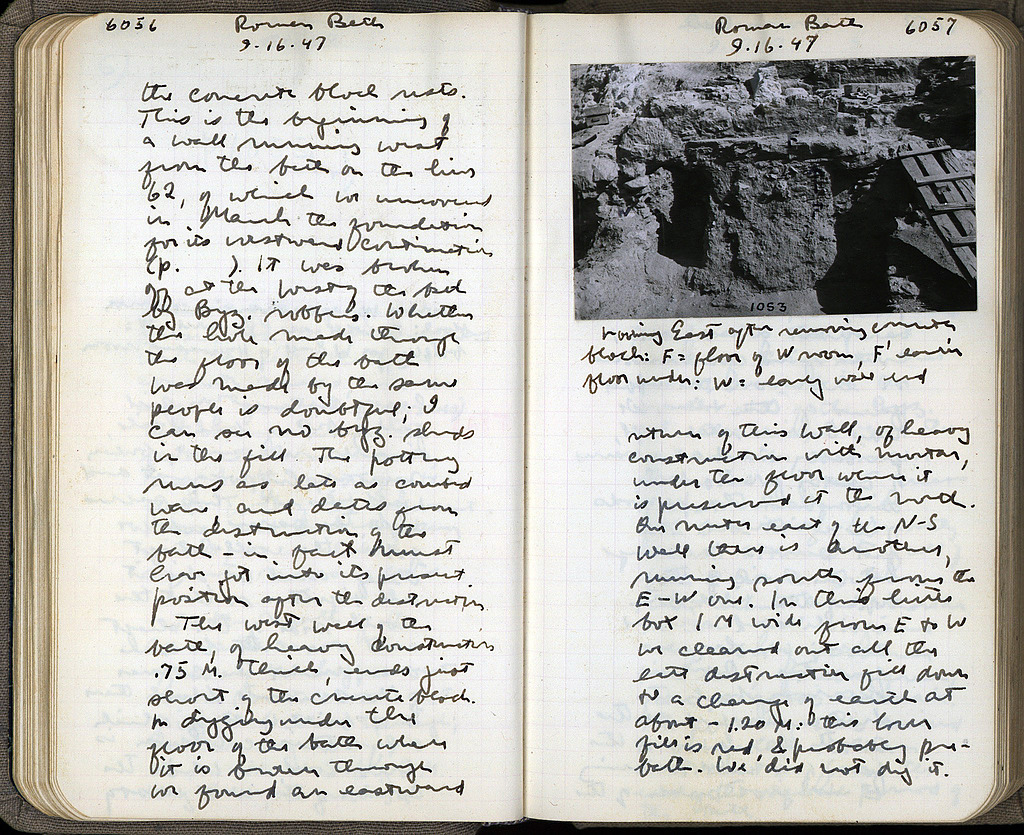 6056
Roman Bath
9.16.47
the concrete block rests.
This is the beginning of
a wall running west
from the bath on the line
62, of which we uncovered
in March the foundation
for its westward continuation
(p.     ). It was broken
off at the west of the bed
by Byz. robbers. Whether
the hole made through
the floor of the bath
was made by the same
people is doubtful; I
can see no byz. sherds
in the fill. The pottery
runs as late as combed
ware and dates from
the destruction of the
bath – in fact must
have got into its present
position after the destruction.
The west wall of the
bath, of heavy construction
.75 M. thick, ends just
short of the concrete block.
In digging under the
floor of the bath where
it is broken through
we found an eastward
Roman Bath
6057
9.16.47
1053
Looking East after removing concrete
block: F = floor of W room, F' earlier
floor under: W = early wall end
return of this wall, of heavy
construction with mortar,
under the floor where it
is preserved at the north.
One meter east of the N-S
wall there is another,
running south from the
E-W one. In this little
box 1 M wide from E to W
we cleaned out all the
late destruction fill down
to a change of earth at
about – 1.20 M. This lower
fill is red & probably pre-
bath. We did not dig it.